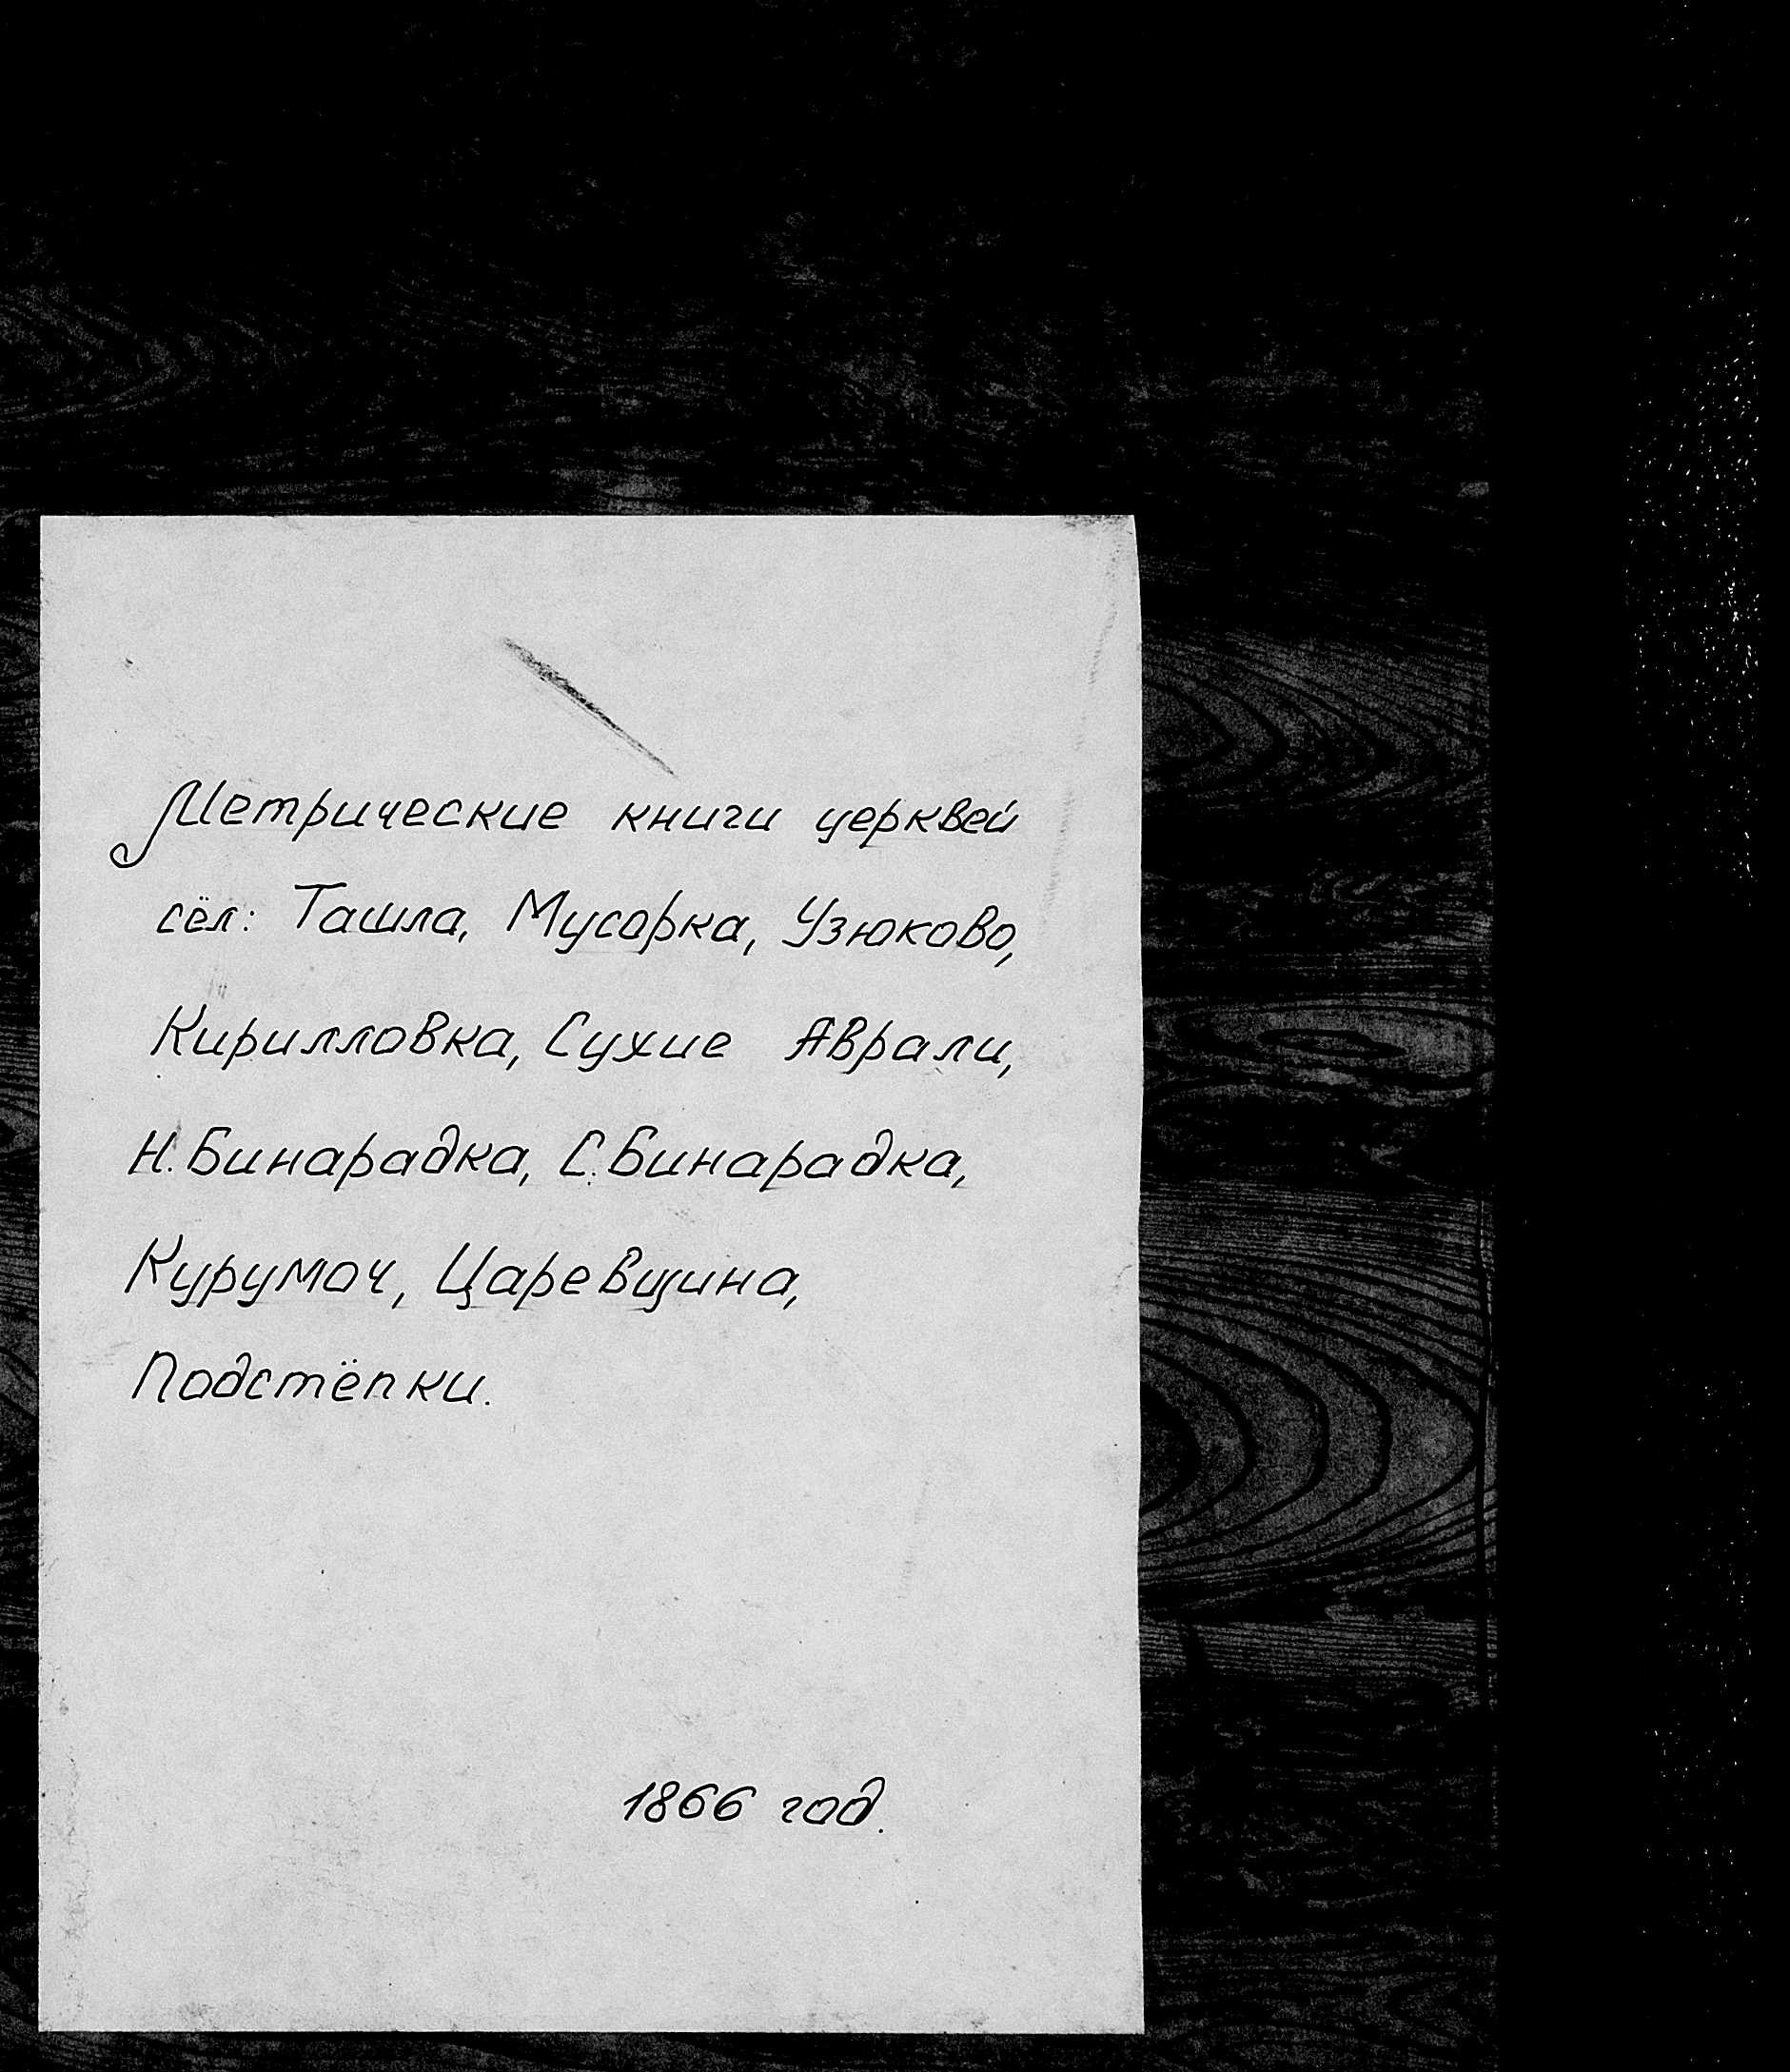 Метрические книги церквей
сёл: Ташла, Мусорка, Узюково,
Кирилловка, Сухие Аврали,
Н. Бинарадка, С. Бинарадка,
Курумоч, Царевщина,
Подстёпки.
1866 год.